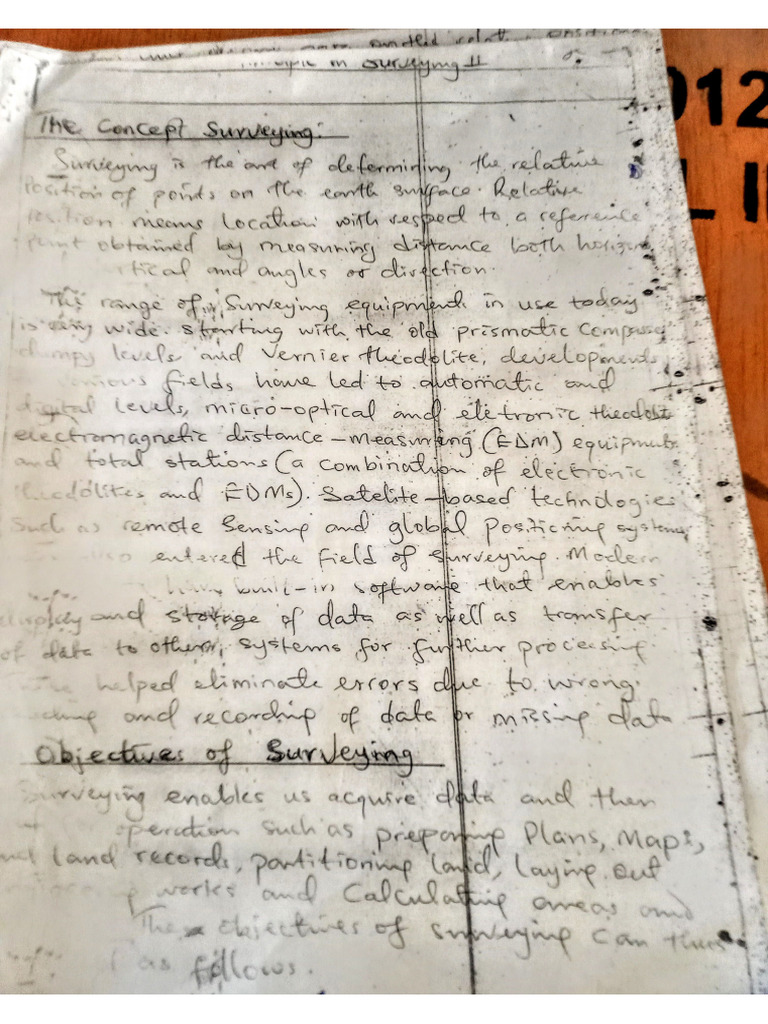 are and the relative position
Principle in Surveying II
The Concept Surveying:
Surveying is the art of determining the relative
Position of points on the earth surface. Relative
position means location with respect to a reference
point obtained by measuring distance both horizon
tical and angles or direction.
The range of Surveying equipments in use today
is very wide. starting with the old prismatic Compass
dumpy levels and Vernier theodolite, developments
fields have led to automatic and
digital levels, micro-optical and eletronic theodolit
electromagnetic distance-measuring (EDM) equipments
and total stations (a combination of electronic
theodolites and EDMs). Satelite-based technologies
Such as remote Sensing and global positioning systems
entered the field of surveying. Modern
have built-in software that enables
display and storage of data as well as transfer
of data to other systems for further processing.
helped eliminate errors due to wrong
and recording of data or missing data
Objectives of Surveying
Surveying enables us acquire data and then
operation such as preparing Plans, Maps,
and land records, partitioning land, laying out
works and Calculating areas and
The objectives of surveying can thus
as follows.
912
L I